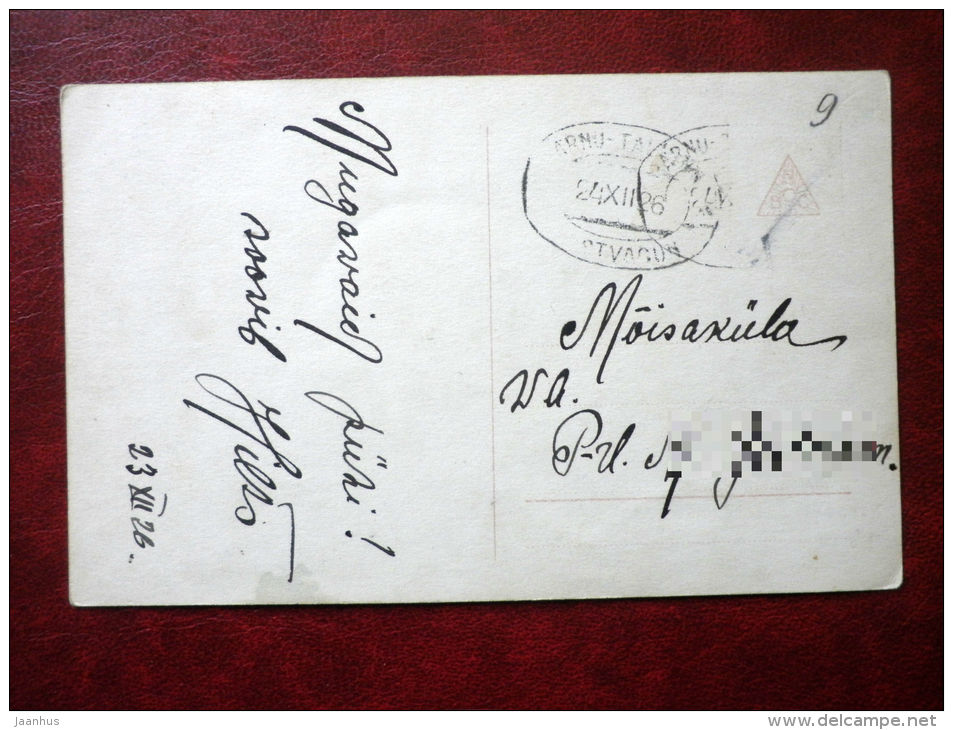 Mugavaid pühi!
soovib
Hilso
23 XII 26.
9
PÄRNU-TAL
24XII26
STVAGUN
PÄRNU-
Mõisaküla
VA.
P-rl.
jaanhus
www.delcampe.net